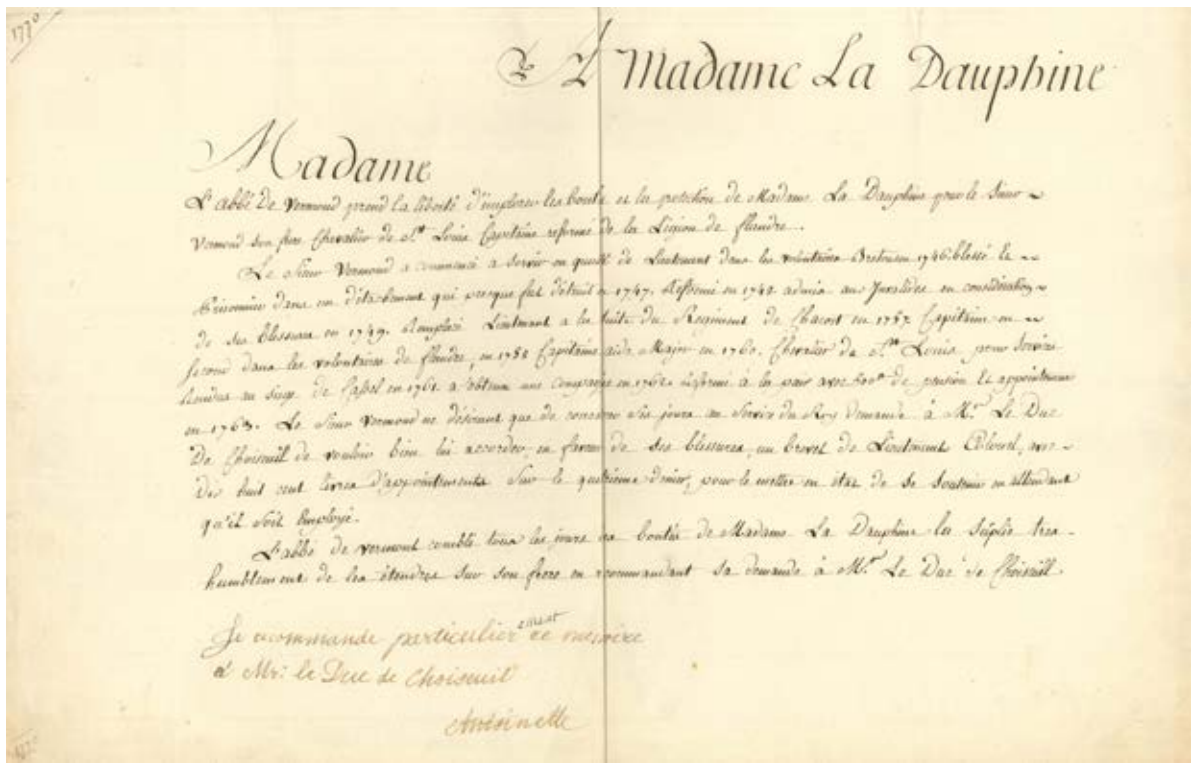 1770
A Madame La Dauphine
Madame
L'abbé De Vermond prend la liberté d'implorer les bontés et la protection de Madame La Dauphine pour le Sieur
Vermond son frere Chevalier de St. Louis Capitaine reformé de la Légion de flandre.
Le Sieur Vermond a commencé a servir en qualité de Lieutenant dans les volontaires Bretons en 1746. blessé Et
Prisonnier dans un détachement qui presque fut détruit en 1747. Reformé en 1748 admis aux Invalides en considération
de ses blessures en 1749. Remplacé Lieutenant a la suite du Regiment de en 1757 Capitaine en
second dans les volontaires de flandre, en 1758 Capitaine aide Major en 1760. Chevalier de St. Louis pour Services
Rendus au siege de Cassel en 1761 a obtenu une Compagnie en 1762 reformé à la paix avec de pension Et appointemens
en 1763. Le Sieur Vermond ne désirant que de consacrer Ses jours au Service du Roy demande à Mr. Le Duc
De Choiseuil de vouloir bien lui accorder, en faveur de ses blessures, un brevet de Lieutenant Colonel, avec
dix huit cent livres d'appointements Sur le quatrieme denier, pour le mettre en état de se soutenir en attendant
qu'il soit Employé.
L'abbé de vermont comblé tous les jours des bontés de Madame La Dauphine la suplie tres
humblement de les étendres sur son frere en recommandant sa demande à Mr. Le Duc de Choiseuill.
Je recommande particulierement ce memoire
a Mr: le Duc de Choiseuil
Antoinette